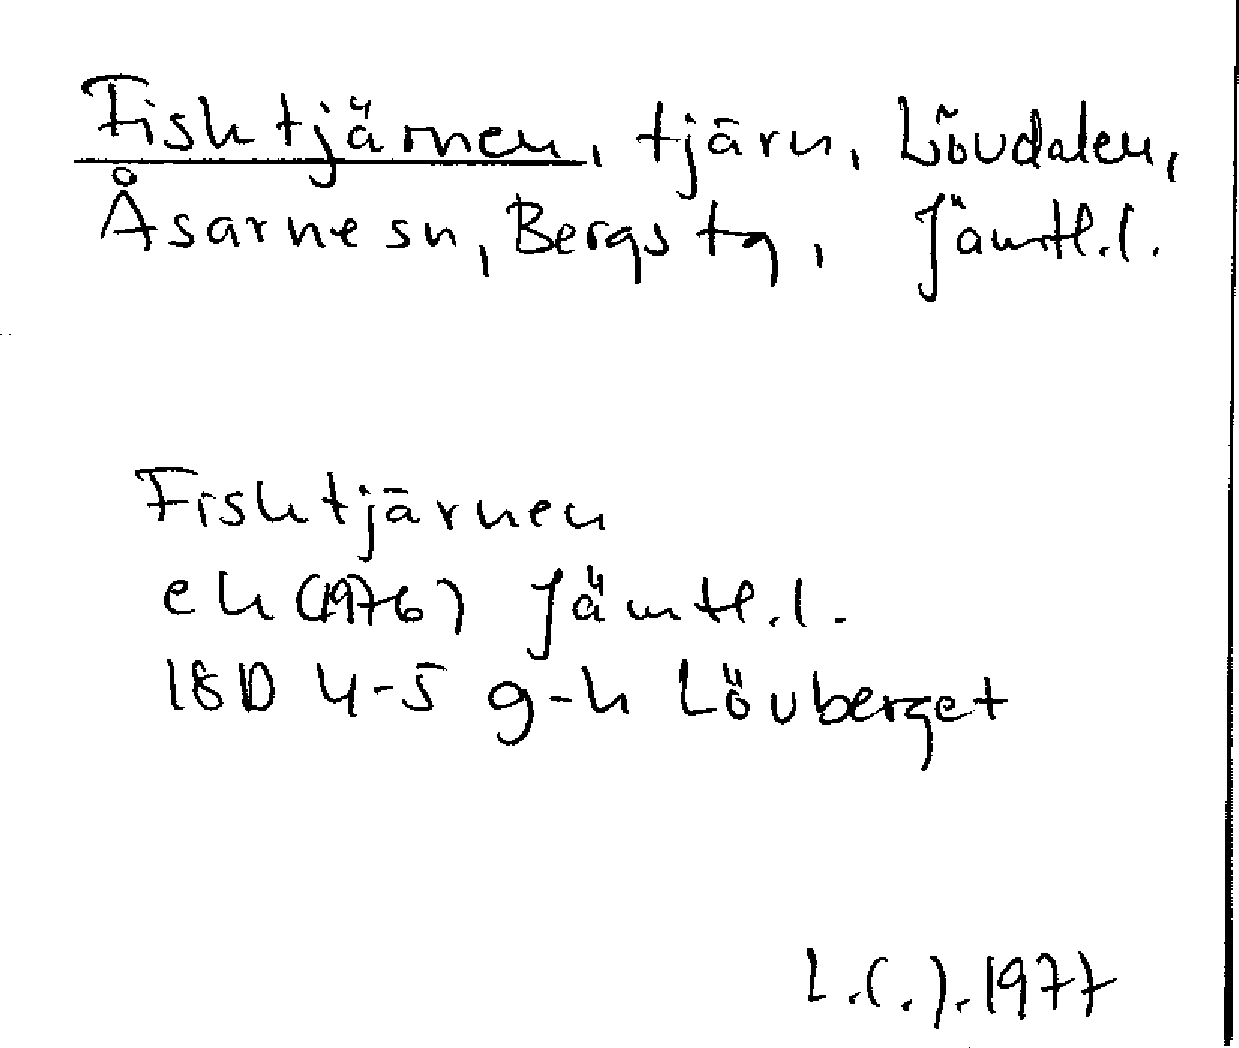 Fisktjärnen, tjärn, Lövdalen,
Åsarne sn, Bergs tg, Jämtl.l.
Fisktjärnen
ek (1976) Jämtl.l.
18D 4-5 g-h Lövberget
1977